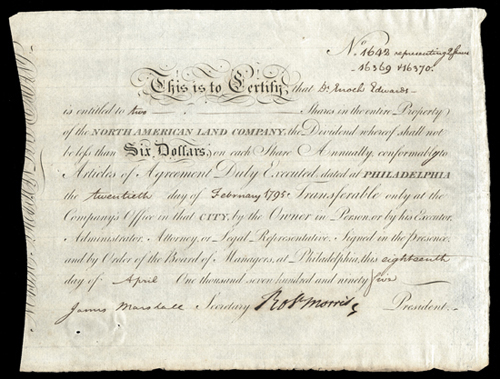 No. 1648 representing 2 shares
16369 & 16370.
This is to Certify, that Dr. Enoch Edwards
is entitled to two Shares in the entire Property
of the NORTH AMERICAN LAND COMPANY, the Dividend whereof shall not
be less than Six Dollars, on each Share Annually, conformably to
Articles of Agreement Duly Executed, dated at PHILADELPHIA
the twentieth day of February 1795. Transferable only at the
Company's Office in that CITY, by the Owner in Person, or by his Executor,
Administrator, Attorney, or Legal Representative. Signed in the presence,
and by Order of the Board of Managers, at Philadelphia, this eighteenth
day of April One thousand seven hundred and ninety five
James Marshall Secretary Robt Morris President.